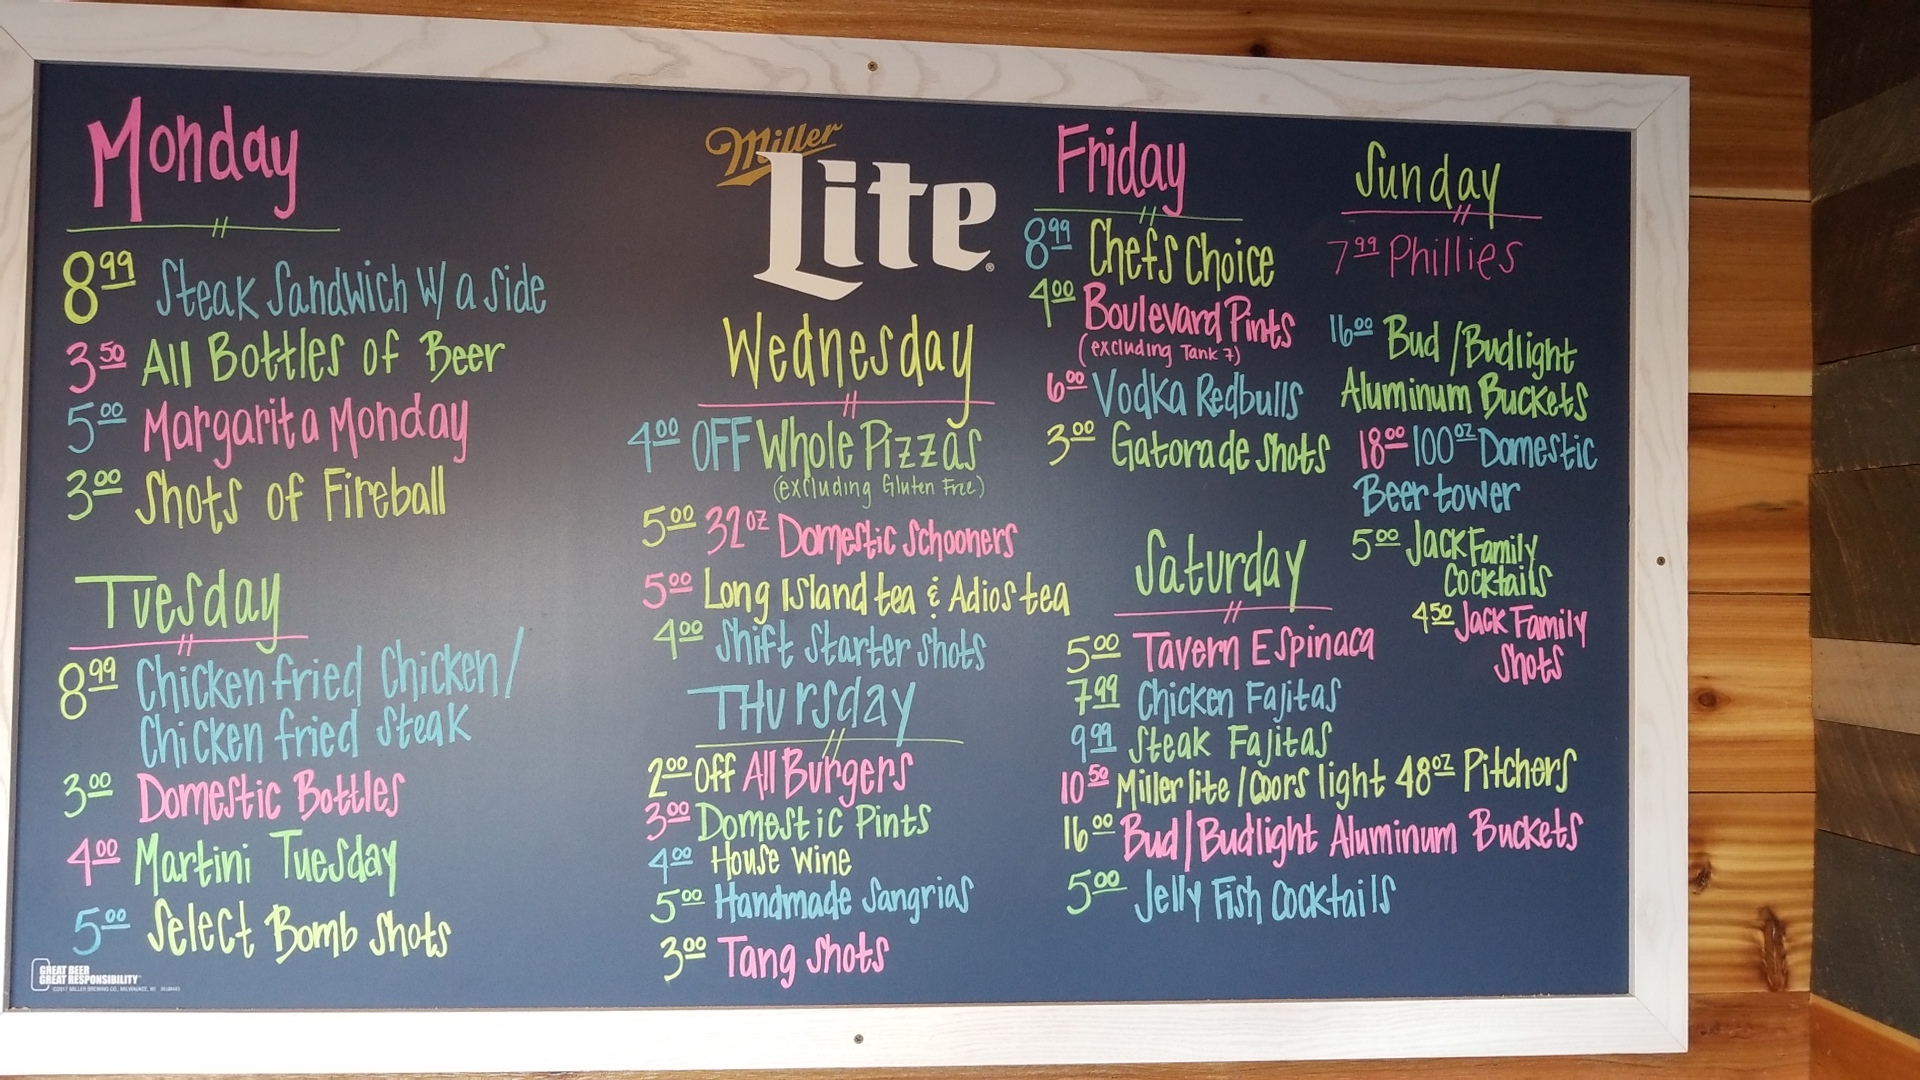 Monday
8.99 Steak Sandwich w/ a side
3.50 All Bottles of Beer
5.00 Margarita Monday
3.00 Shots of Fireball
Tuesday
8.99 Chicken fried Chicken/
Chicken fried Steak
3.00 Domestic Bottles
4.00 Martini Tuesday
5.00 Select Bomb Shots
GREAT BEER
GREAT RESPONSIBILITY
©2017 MILLER BREWING CO., MILWAUKEE, WI
Miller
Lite
Wednesday
4.00 OFF Whole Pizzas
(excluding Gluten Free)
5.00 32oz Domestic Schooners
5.00 Long Island tea & Adios tea
4.00 Shift Starter Shots
THursday
2.00 Off All Burgers
3.00 Domestic Pints
4.00 House Wine
5.00 Handmade Sangrias
3.00 Tang Shots
Friday
8.99 Chefs Choice
4.00 Boulevard Pints
(excluding Tank 7)
6.00 Vodka Redbulls
3.00 Gatorade Shots
Saturday
5.00 Tavern Espinaca
7.99 Chicken Fajitas
9.99 Steak Fajitas
10.50 Miller lite / Coors light 48oz Pitchers
16.00 Bud/Budlight Aluminum Buckets
5.00 Jelly Fish Cocktails
Sunday
7.99 Phillies
16.00 Bud/Budlight
Aluminum Buckets
18.00 100oz Domestic
Beer tower
5.00 Jack Family
Cocktails
4.50 Jack Family
Shots